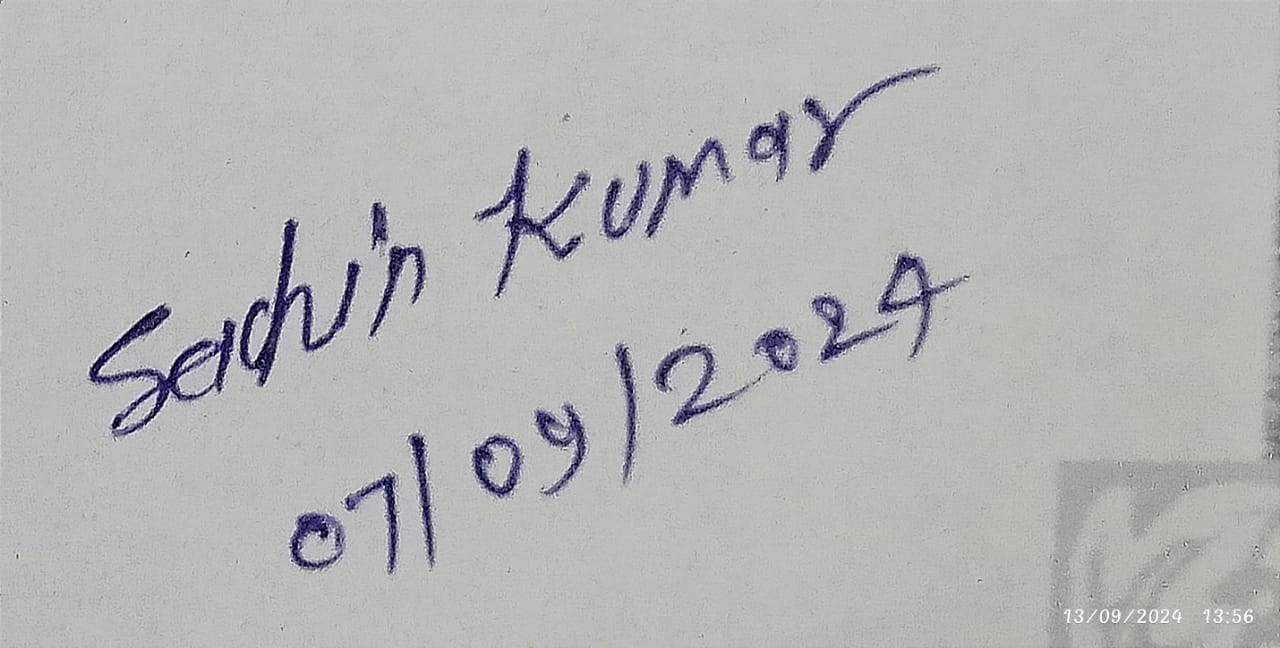 Sachin Kumar
07/09/2024
13/09/2024 13:56